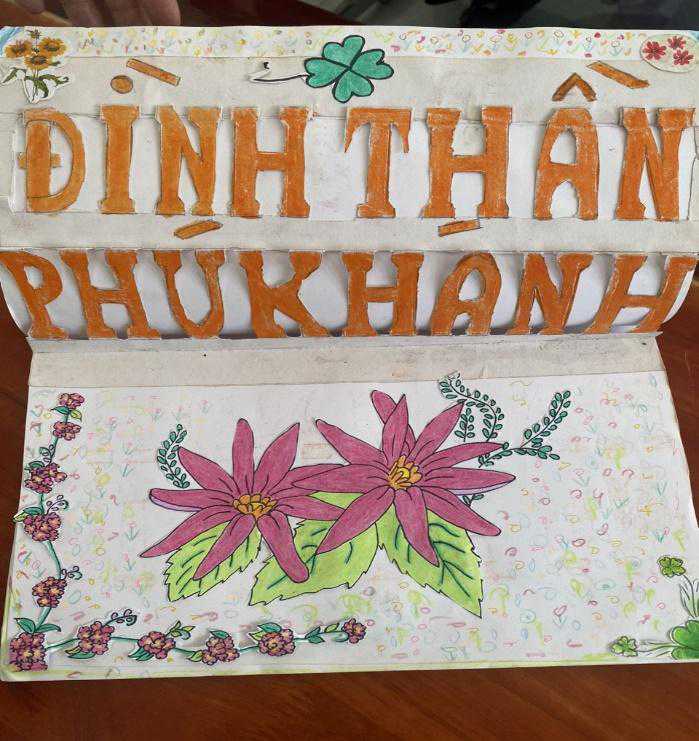 ĐÌNH THẦN
PHÚ KHÁNH